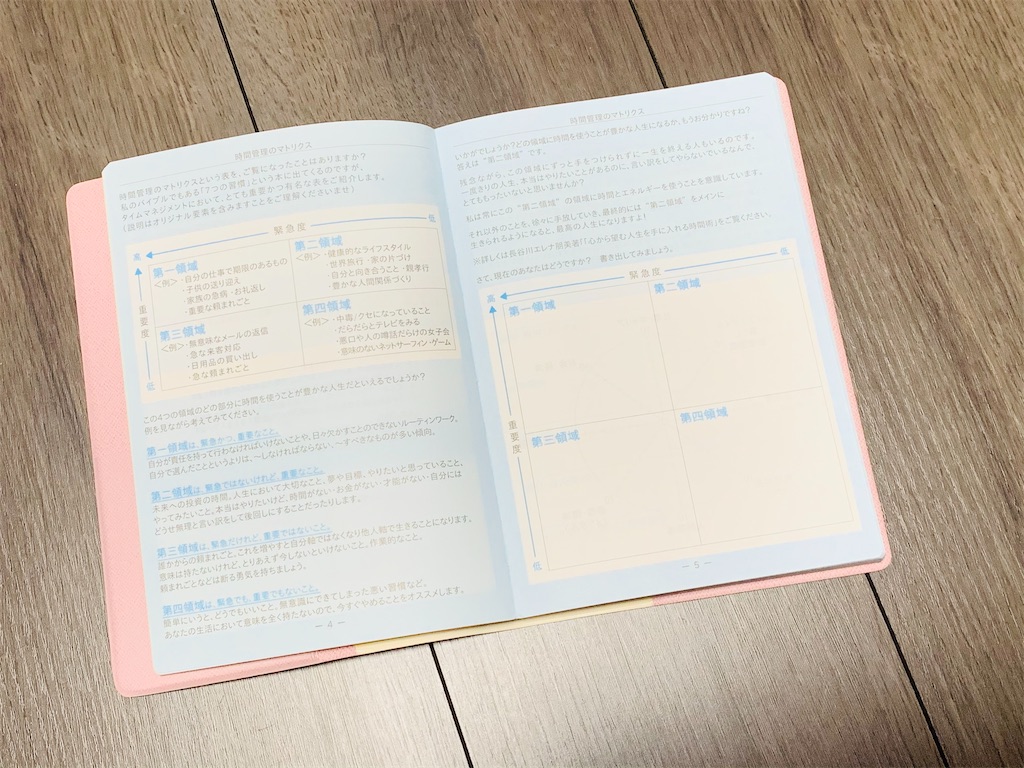 時間管理のマトリクス
時間管理のマトリクスという表を、ご覧になったことはありますか?
私のバイブルでもある「7つの習慣」という本に出てくるのですが、
タイムマネジメントにおいて、とても重要かつ有名な表をご紹介します。
(説明はオリジナル要素を含みますことをご理解くださいませ)
高 緊急度 低
重要度
低
第一領域
<例>・自分の仕事で期限のあるもの
・子供の送り迎え
・家族の急病・お礼返し
・重要な頼まれごと
第二領域
<例>・健康的なライフスタイル
・世界旅行・家の片づけ
・自分と向き合うこと・親孝行
・豊かな人間関係づくり
第三領域
<例>・無意味なメールの返信
・急な来客対応
・日用品の買い出し
・急な頼まれごと
第四領域
<例>・中毒/クセになっていること
・だらだらとテレビをみる
・悪口や人の噂話だらけの女子会
・意味のないネットサーフィン・ゲーム
この4つの領域のどの部分に時間を使うことが豊かな人生だといえるでしょうか?
例を見ながら考えてみてください。
第一領域は、緊急かつ、重要なこと。
自分が責任を持って行わなければいけないことや、日々欠かすことのできないルーティンワーク。
自分で選んだことというよりは、〜しなければならない、〜すべきなものが多い傾向。
第二領域は、緊急ではないけれど、重要なこと。
未来への投資の時間。人生において大切なこと。夢や目標。やりたいと思っていること。
やってみたいこと。本当はやりたいけど、時間がない・お金がない・才能がない・自分には
どうせ無理と言い訳をして後回しにすることだったりします。
第三領域は、緊急だけれど、重要ではないこと。
誰かからの頼まれごと。これを増やすと自分軸ではなくなり他人軸で生きることになります。
意味は持たないけれど、とりあえず今しないといけないこと。作業的なこと。
頼まれごとなどは断る勇気を持ちましょう。
第四領域は、緊急でも、重要でもないこと。
簡単にいうと、どうでもいいこと。無意識にできてしまった悪い習慣など。
あなたの生活において意味を全く持たないので、今すぐやめることをオススメします。
— 4 —
時間管理のマトリクス
いかがでしょうか?どの領域に時間を使うことが豊かな人生になるか、もうお分かりですね?
答えは"第二領域"です。
残念ながら、この領域にずっと手をつけられずに一生を終える人もいるのです。
一度きりの人生、本当はやりたいことがあるのに、言い訳をしてやらないでいるなんて、
とてももったいないと思いませんか?
私は常にこの"第二領域"の領域に時間とエネルギーを使うことを意識しています。
それ以外のことを、徐々に手放していき、最終的には"第二領域"をメインに
生きられるようになると、最高の人生になりますよ!
※詳しくは長谷川エレナ朋美著「「心から望む人生を手に入れる時間術」をご覧ください。
さて、現在のあなたはどうですか? 書き出してみましょう。
高 緊急度 低
重要度
低
第一領域
第二領域
第三領域
第四領域
— 5 —